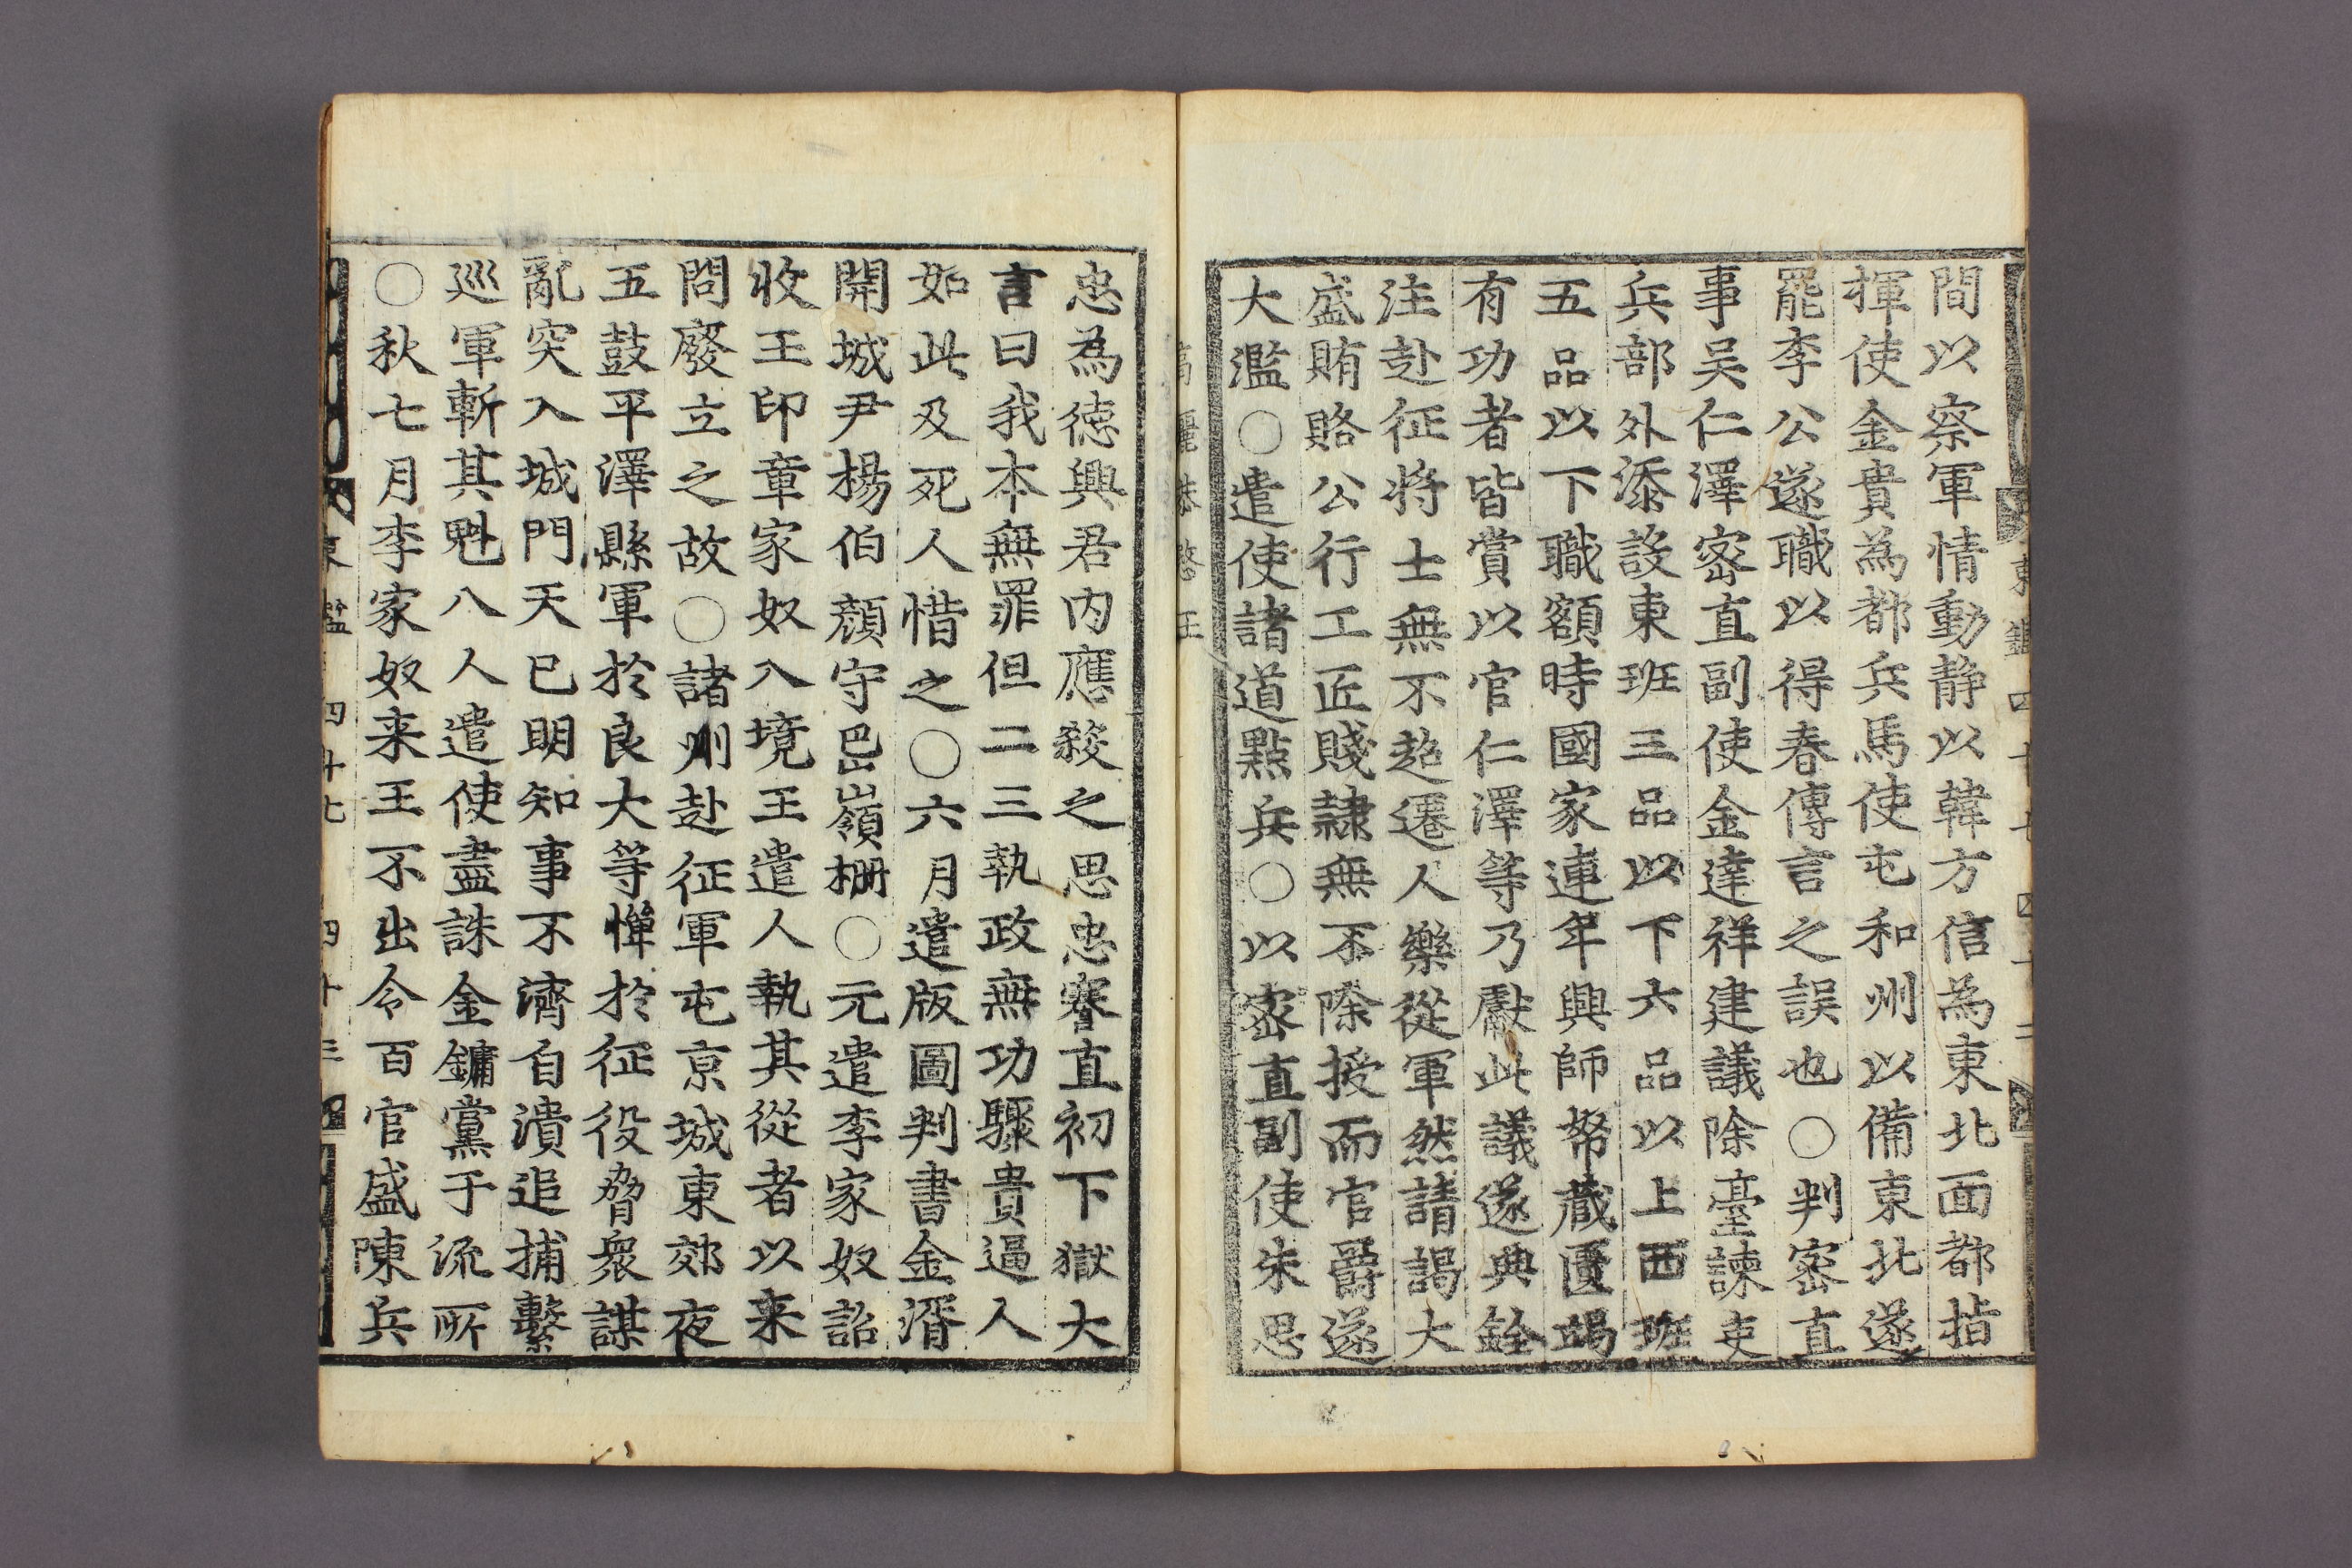 間以察軍情動静以韓方信為東北面都指
揮使金貴為都兵馬使屯和州以備東北遂
罷李公遂職以得春傳言之誤也〇判宻直
事吴仁澤宻直副使金達祥建議除臺諫吏
兵部外添設東班三品以下六品以上西班
五品以下職額時國家連年興師帑蔵匱竭
有功者皆賞以官仁澤等乃獻此議遂典銓
注赴征將士無不超遷人樂從軍然請謁大
盛賄賂公行工匠賤隷無不除授而官爵遂
大濫〇遣使諸道點兵〇以宻直副使朱思
忠為徳興君内應殺之思忠謇直初下獄大
言曰我本無罪但二三執政無功驟貴逼人
如此及死人惜之〇六月遣版圖判書金湑
開城尹楊伯顔守岊嶺柵〇元遣李家奴詔
收王印章家奴入境王遣人執其從者以来
問廢立之故〇諸州赴征軍屯京城東郊夜
五鼓平澤縣軍於良大等憚於征役脅衆謀
亂突入城門天已明知事不濟自潰追捕繫
巡軍斬其魁八人遣使盡誅金鏞黨于流所
〇秋七月李家奴来王不出令百官盛陳兵
東鑑 四十七 四十三